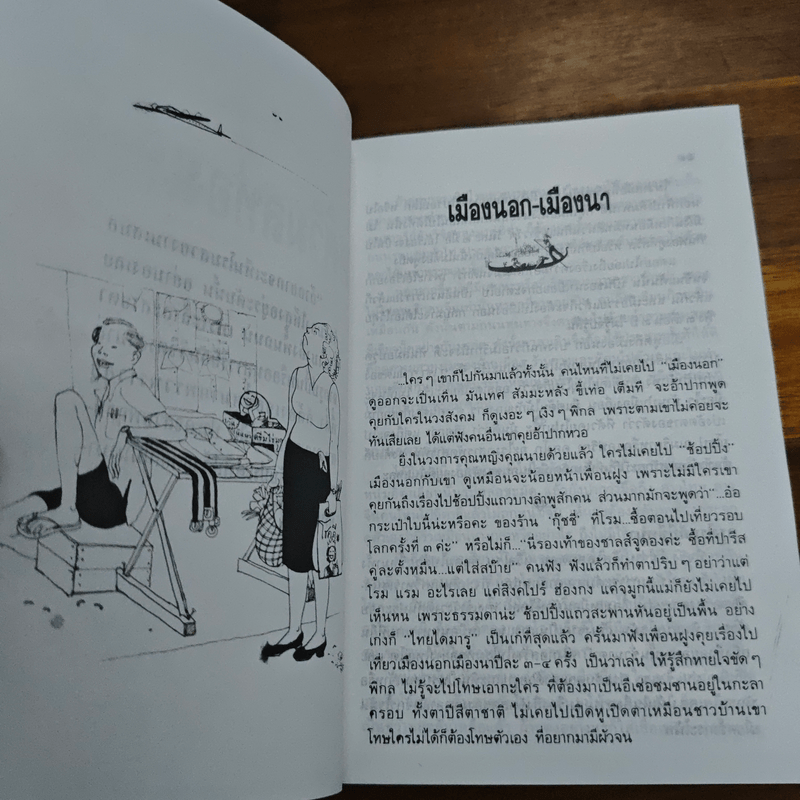 เมืองนอก-เมืองนา
...ใคร ๆ เขาก็ไปกันมาแล้วทั้งนั้น คนไหนที่ไม่เคยไป "เมืองนอก"
ดูออกจะเป็นเทิ่น มันเทศ สัมมะหลัง ขี้เท่อ เต็มที จะอ้าปากพูด
คุยกับใครในวงสังคม ก็ดูเงอะ ๆ เงิ่ง ๆ พิกล เพราะตามเขาไม่ค่อยจะ
ทันเสียเลย ได้แต่ฟังคนอื่นเขาคุยอ้าปากหวอ
ยิ่งในวงการคุณหญิงคุณนายด้วยแล้ว ใครไม่เคยไป "ช้อปปิ้ง"
เมืองนอกกับเขา ดูเหมือนจะน้อยหน้าเพื่อนฝูง เพราะไม่มีใครเขา
คุยกันถึงเรื่องไปช้อปปิ้งแถวบางลำพูสักคน ส่วนมากมักจะพูดว่า "...อ๋อ
กระเป๋าใบนี้น่ะหรือคะ ของร้าน 'กุ๊ชชี่' ที่โรม...ซื้อตอนไปเที่ยวรอบ
โลกครั้งที่ ๓ ค่ะ" หรือไม่ก็..."นี่รองเท้าของชาลส์จูดองค่ะ ซื้อที่ปารีส
คู่ละตั้งหมื่น...แต่ใส่สบ๊าย" คนฟัง ฟังแล้วก็ทำตาปริบ ๆ อย่าว่าแต่
โรม แรม อะไรเลย แค่สิงคโปร์ ฮ่องกง แค่จมูกนี้แม่ก็ยังไม่เคยไป
เห็นหน เพราะธรรมดาน่ะ ช้อปปิ้งแถวสะพานหันอยู่เป็นพื้น อย่าง
เก่งก็ "ไทยไดมารู" เป็นเก๋ที่สุดแล้ว ครั้นมาฟังเพื่อนฝูงคุยเรื่องไป
เที่ยวเมืองนอกเมืองนาปีละ ๓-๔ ครั้ง เป็นว่าเล่น ให้รู้สึกหายใจขัด ๆ
พิกล ไม่รู้จะไปโทษเอากะใคร ที่ต้องมาเป็นอีเซ่อซมซานอยู่ในกะลา
ครอบ ทั้งตาปีสีตาชาติ ไม่เคยไปเปิดหูเปิดตาเหมือนชาวบ้านเขา
โทษใครไม่ได้ก็ต้องโทษตัวเอง ที่อยากมามีผัวจน